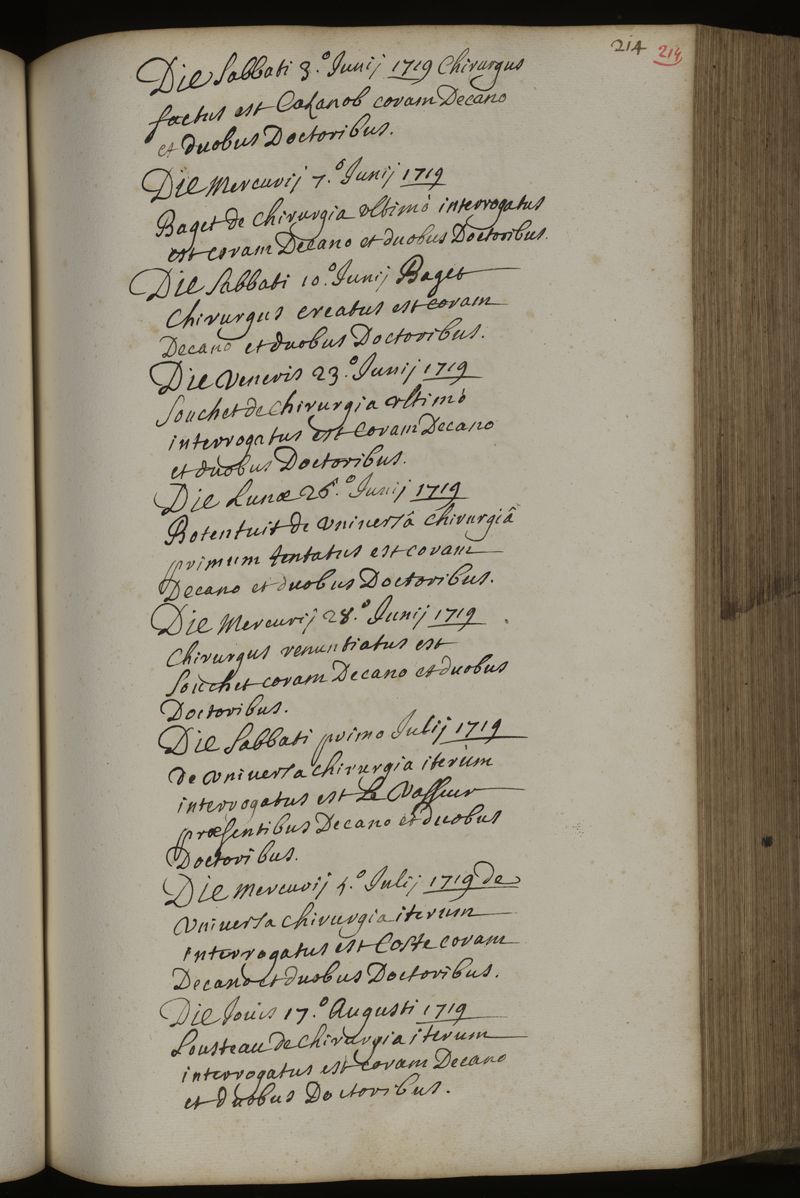 214 214
Die Sabbati 3.º Junij 1719 Chirurgus
factus est Calanob coram Decano
et duobus Doctoribus.
Die Mercurij 7.º Junij 1719
Baget de Chirurgia ultimò interrogatus
est coram Decano et duobus Doctoribus.
Die Sabbati 10.º Junij Baget
Chirurgus creatus est coram
Decano et duobus Doctoribus.
Die Veneris 23.º Junij 1719
Souchet de Chirurgia ultimò
interrogatus est Coram Decano
et duobus Doctoribus.
Die Lunæ 26.º Junij 1719
Botentuit de universâ Chirurgiâ
primum tentatus est coram
Decano et duobus Doctoribus.
Die Mercurij 28.º Junij 1719
Chirurgus renuntiatus est
Souchet coram Decano et duobus
Doctoribus.
Die Sabbati primo Julij 1719
de universa Chirurgia iterùm
interrogatus est Le Vasseur
præsentibus Decano et duobus
Doctoribus.
Die Mercurij 5.º Julij 1719 de
universa Chirurgia iterum
interrogatus est Coste coram
Decano et duobus Doctoribus.
Die Jovis 17.º Augusti 1719
Lousteau de Chirurgia iterum
interrogatus est coram Decano
et duobus Doctoribus.